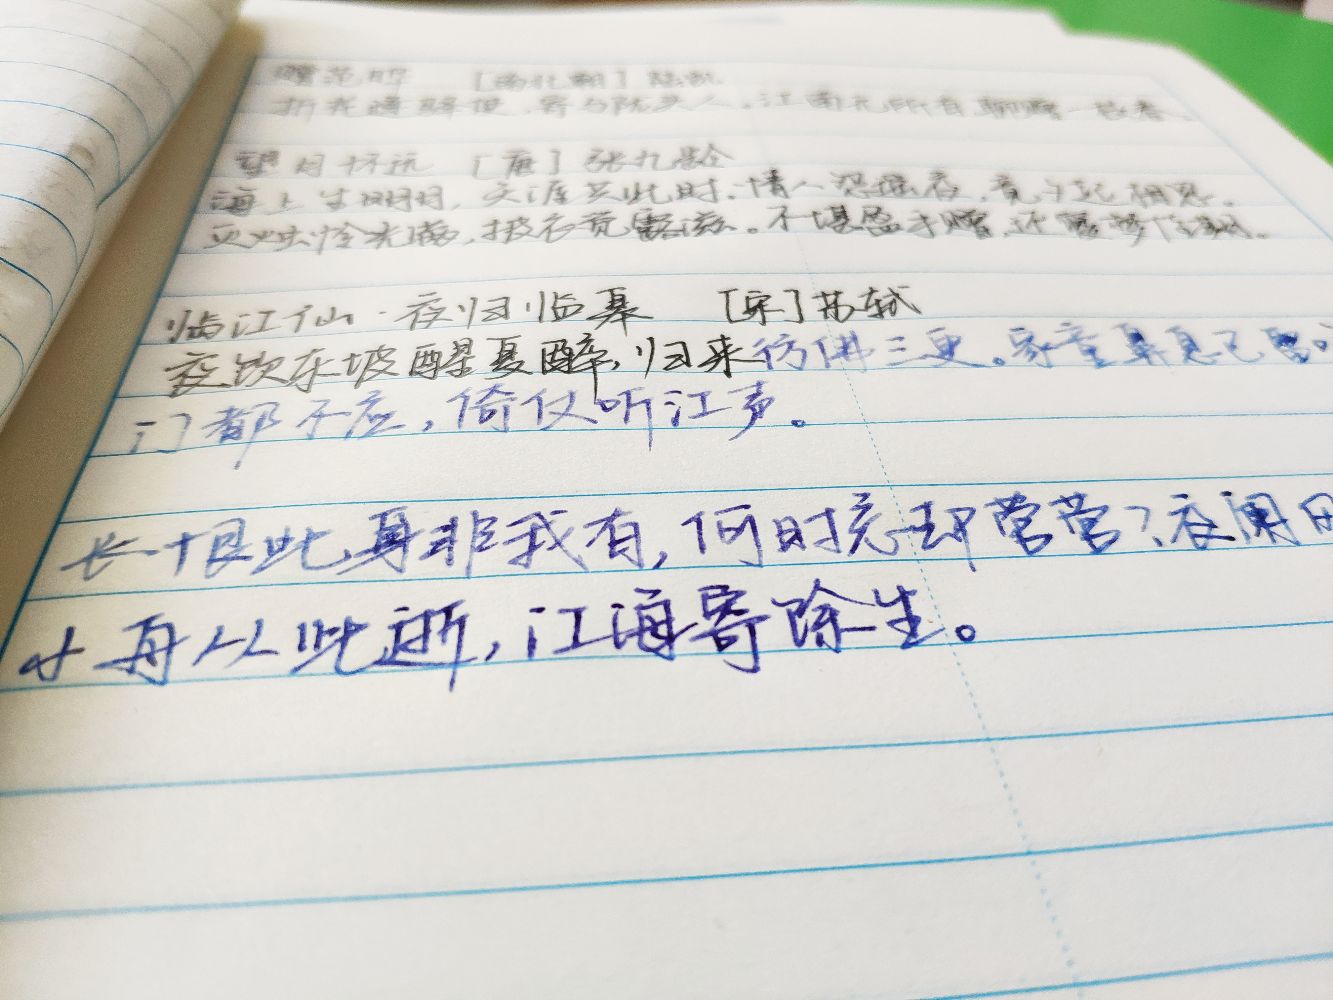 赠范晔 [南北朝] 陆凯
折花逢驿使,寄与陇头人。江南无所有,聊赠一枝春。
望月怀远 [唐] 张九龄
海上生明月,天涯共此时。情人怨遥夜,竟夕起相思。
灭烛怜光满,披衣觉露滋。不堪盈手赠,还寝梦佳期。
临江仙·夜归临皋 [宋] 苏轼
夜饮东坡醒复醉,归来彷佛三更。家童鼻息已雷
门都不应,倚仗听江声。
长恨此身非我有,何时忘却营营?夜阑风
小舟从此逝,江海寄馀生。